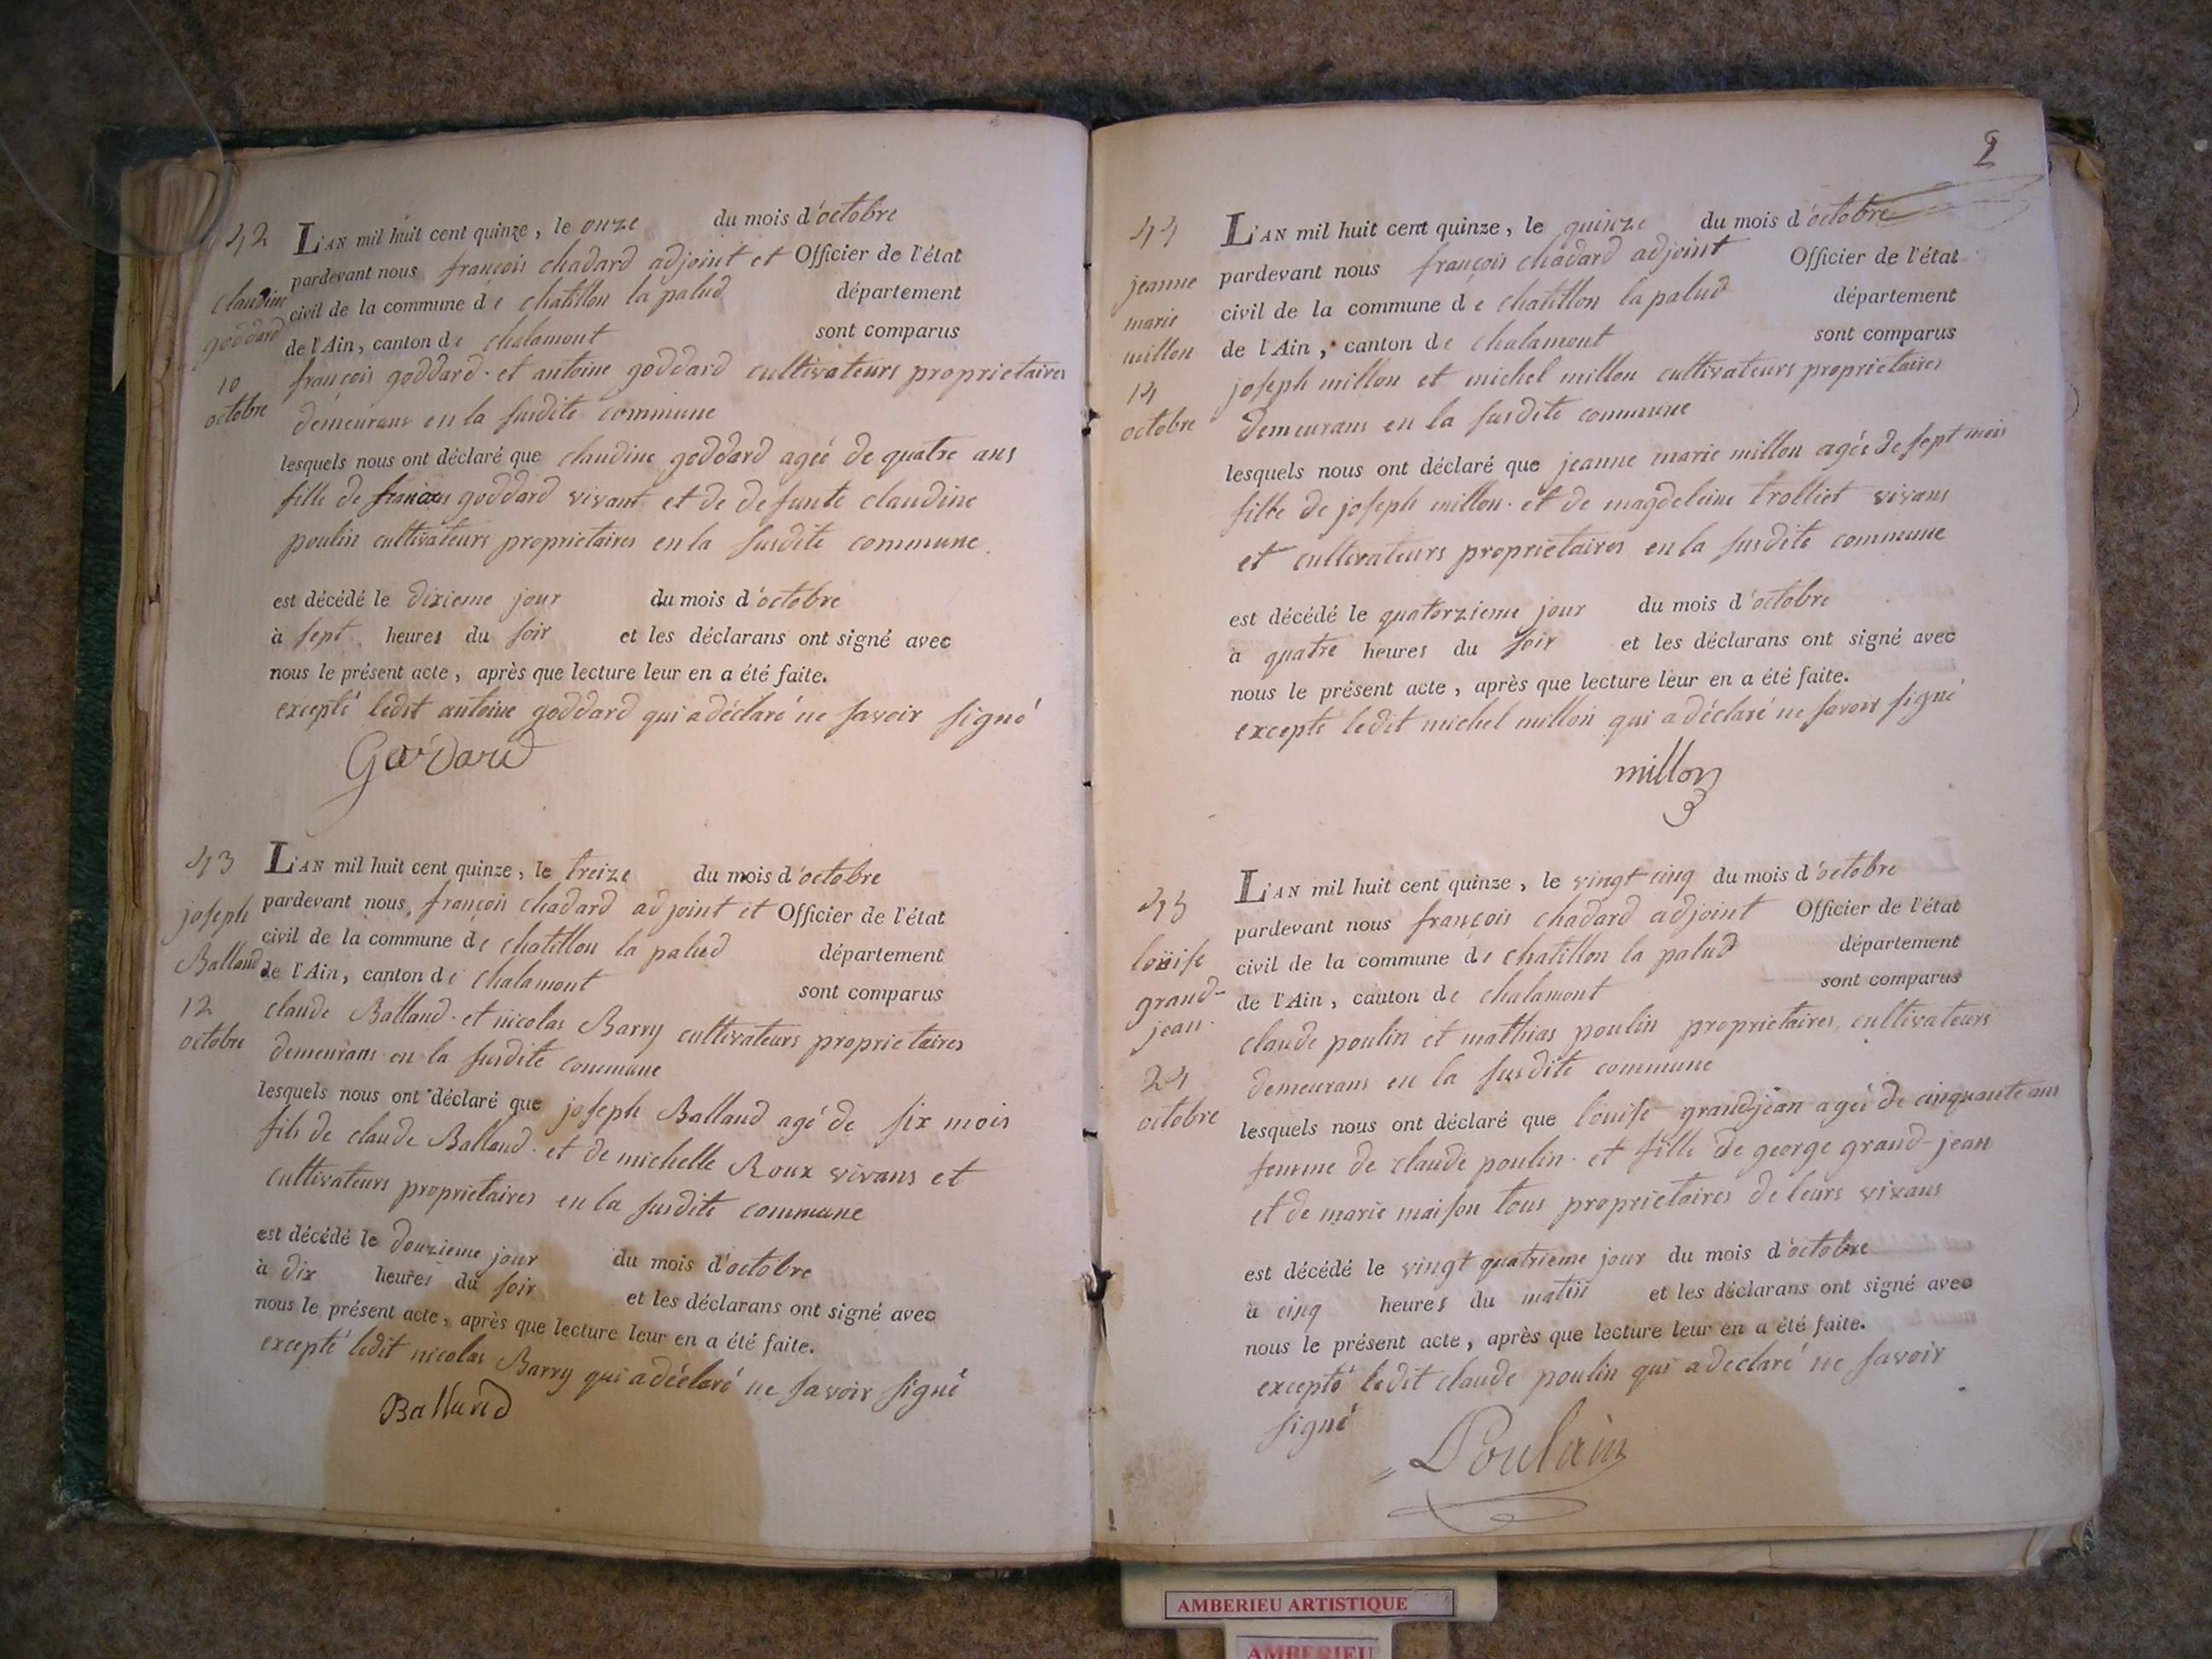 42
claudine
goddard
10
octobre
L'AN mil huit cent quinze, le onze du mois d'octobre
pardevant nous françois chadard adjoint et Officier de l'état
civil de la commune de chatillon la palud département
de l'Ain, canton de chalamont sont comparus
françois goddard et antoine goddard cultivateurs proprietaires
demeurans en la susdite commune
lesquels nous ont déclaré que claudine goddard ageé de quatre ans
fille de francois goddard vivant et de defunte claudine
poulin cultivateurs proprietaires en la susdite commune.
est décédé le dixieme jour du mois d'octobre
à sept heures du soir et les déclarans ont signé avec
nous le présent acte, après que lecture leur en a été faite.
excepté ledit antoine goddard qui a déclaré ne savoir signé
Goddard
43
joseph
Balland
12
octobre
L'AN mil huit cent quinze, le treize du mois d'octobre
pardevant nous françois chadard adjoint et Officier de l'état
civil de la commune de chatillon la palud département
de l'Ain, canton de chalamont sont comparus
claude Balland et nicolas Barry cultivateurs proprietaires
demeurans en la susdite commune
lesquels nous ont déclaré que joseph Balland agé de six mois
fils de claude Balland et de michelle Roux vivans et
cultivateurs proprietaires en la susdite commune
est décédé le douzieme jour du mois d'octobre
à dix heures du soir et les déclarans ont signé avec
nous le présent acte, après que lecture leur en a été faite.
excepté ledit nicolas Barry qui a déclaré ne savoir signé
Balland
44
jeanne
marie
millon
14
octobre
L'AN mil huit cent quinze, le quinze du mois d'octobre
pardevant nous françois chadard adjoint Officier de l'état
civil de la commune de chatillon la palud département
de l'Ain, canton de chalamont sont comparus
joseph millon et michel millon cultivateurs proprietaires
demeurans en la susdite commune
lesquels nous ont déclaré que jeanne marie millon ageé de sept mois
fille de joseph millon et de magdeleine trolliet vivans
et cultivateurs proprietaires en la susdite commune
est décédé le quatorzieme jour du mois d'octobre
à quatre heures du soir et les déclarans ont signé avec
nous le présent acte, après que lecture leur en a été faite.
excepté ledit michel millon qui a déclaré ne savoir signé
millon
45
loüise
grand-
jean
24
octobre
L'AN mil huit cent quinze, le vingt cinq du mois d'octobre
pardevant nous françois chadard adjoint Officier de l'état
civil de la commune de chatillon la palud département
de l'Ain, canton de chalamont sont comparus
claude poulin et mathias poulin proprietaires cultivateurs
demeurans en la susdite commune
lesquels nous ont déclaré que loüise grandjean ageé de cinquante ans
femme de claude poulin et fille de george grand-jean
et de marie maison tous proprietaires de leurs vivans
est décédé le vingt quatrieme jour du mois d'octobre
à cinq heures du matin et les déclarans ont signé avec
nous le présent acte, après que lecture leur en a été faite.
excepté ledit claude poulin qui a declaré ne savoir
signé
Poulain
AMBERIEU ARTISTIQUE
AMBERIEU